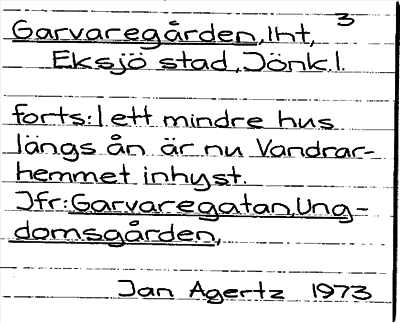 3
Garvaregården, Iht,
Eksjö stad, Jönk.l.
forts: I ett mindre hus
längs ån är nu Vandrar-
hemmet inhyst.
Jfr: Garvaregatan, Ung-
domsgården,
Jan Agertz 1973